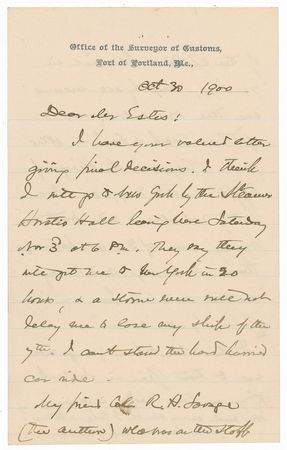 Office of the Surveyor of Customs,
Port of Portland, Me.,
Oct 30 1900
Dear Mr Estes:
I have your valued letter
giving final decisions. I think
I will go to New York by the Steamer
Horatio Hall leaving here Saturday
Nov 3rd at 6 P.M. They say they
will get me to New York in 20
hours, & a storm even will not
delay me to lose my ship of the
7th. I can't stand the hard hurried
car ride.
My friend Col. R. H. Savage
(the author) who was on the staff